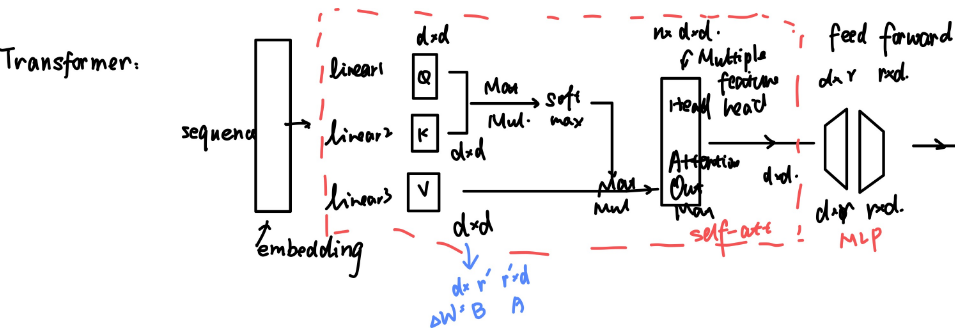 Transformer:
sequenc
embedding
linear1
linear2
linear3
d×d
Q
K
V
d×d
d×d
Mat
Mul.
soft
max
Mat
Mul
n× d×d.
Multiple
feature
head
Head
Attention
Out
Man
d×d.
self-att
feed forward
d×r r×d.
d×r r×d.
MLP
d× r' r'×d
ΔW = B A